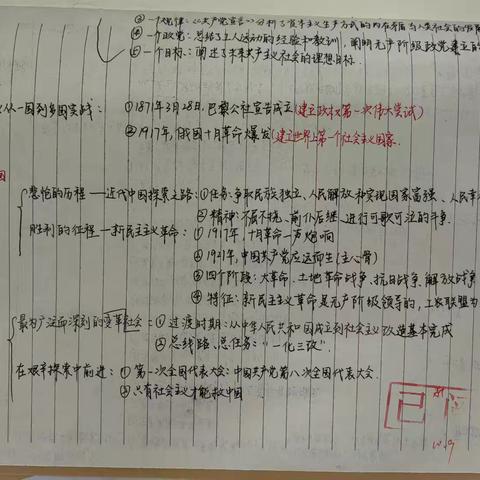 ③一个规律：《共产党宣言》分析了资本主义生产方式的内在矛盾与人类社会的发展
④一个政党：总结了工人运动的经验和教训，阐明无产阶级政党建立的
⑤一个目标：阐述了未来共产主义社会的理想目标.
从一国到多国实践：①1871年3月28日，巴黎公社宣告成立(建立政权第一次伟大尝试)
②1917年，俄国十月革命爆发(建立世界上第一个社会主义国家.
国
悲怆的历程——近代中国探索之路：①任务：争取民族独立、人民解放和实现国家富强、人民幸
②精神：不屈不挠、前仆后继、进行可歌可泣的斗争.
胜利的征程—新民主主义革命：①1917年，十月革命一声炮响
②1921年，中国共产党应运而生(主心骨)
③四个阶段：大革命、土地革命战争、抗日战争、解放战争
④特征：新民主主义革命是无产阶级领导的，工农联盟为
最为广泛而深刻的变革社会：①过渡时期：从中华人民共和国成立到社会主义改造基本完成
②总线路、总任务："一化三改".
在艰辛探索中前进：①第一次全国代表大会：中国共产党第八次全国代表大会.
②只有社会主义才能救中国
已